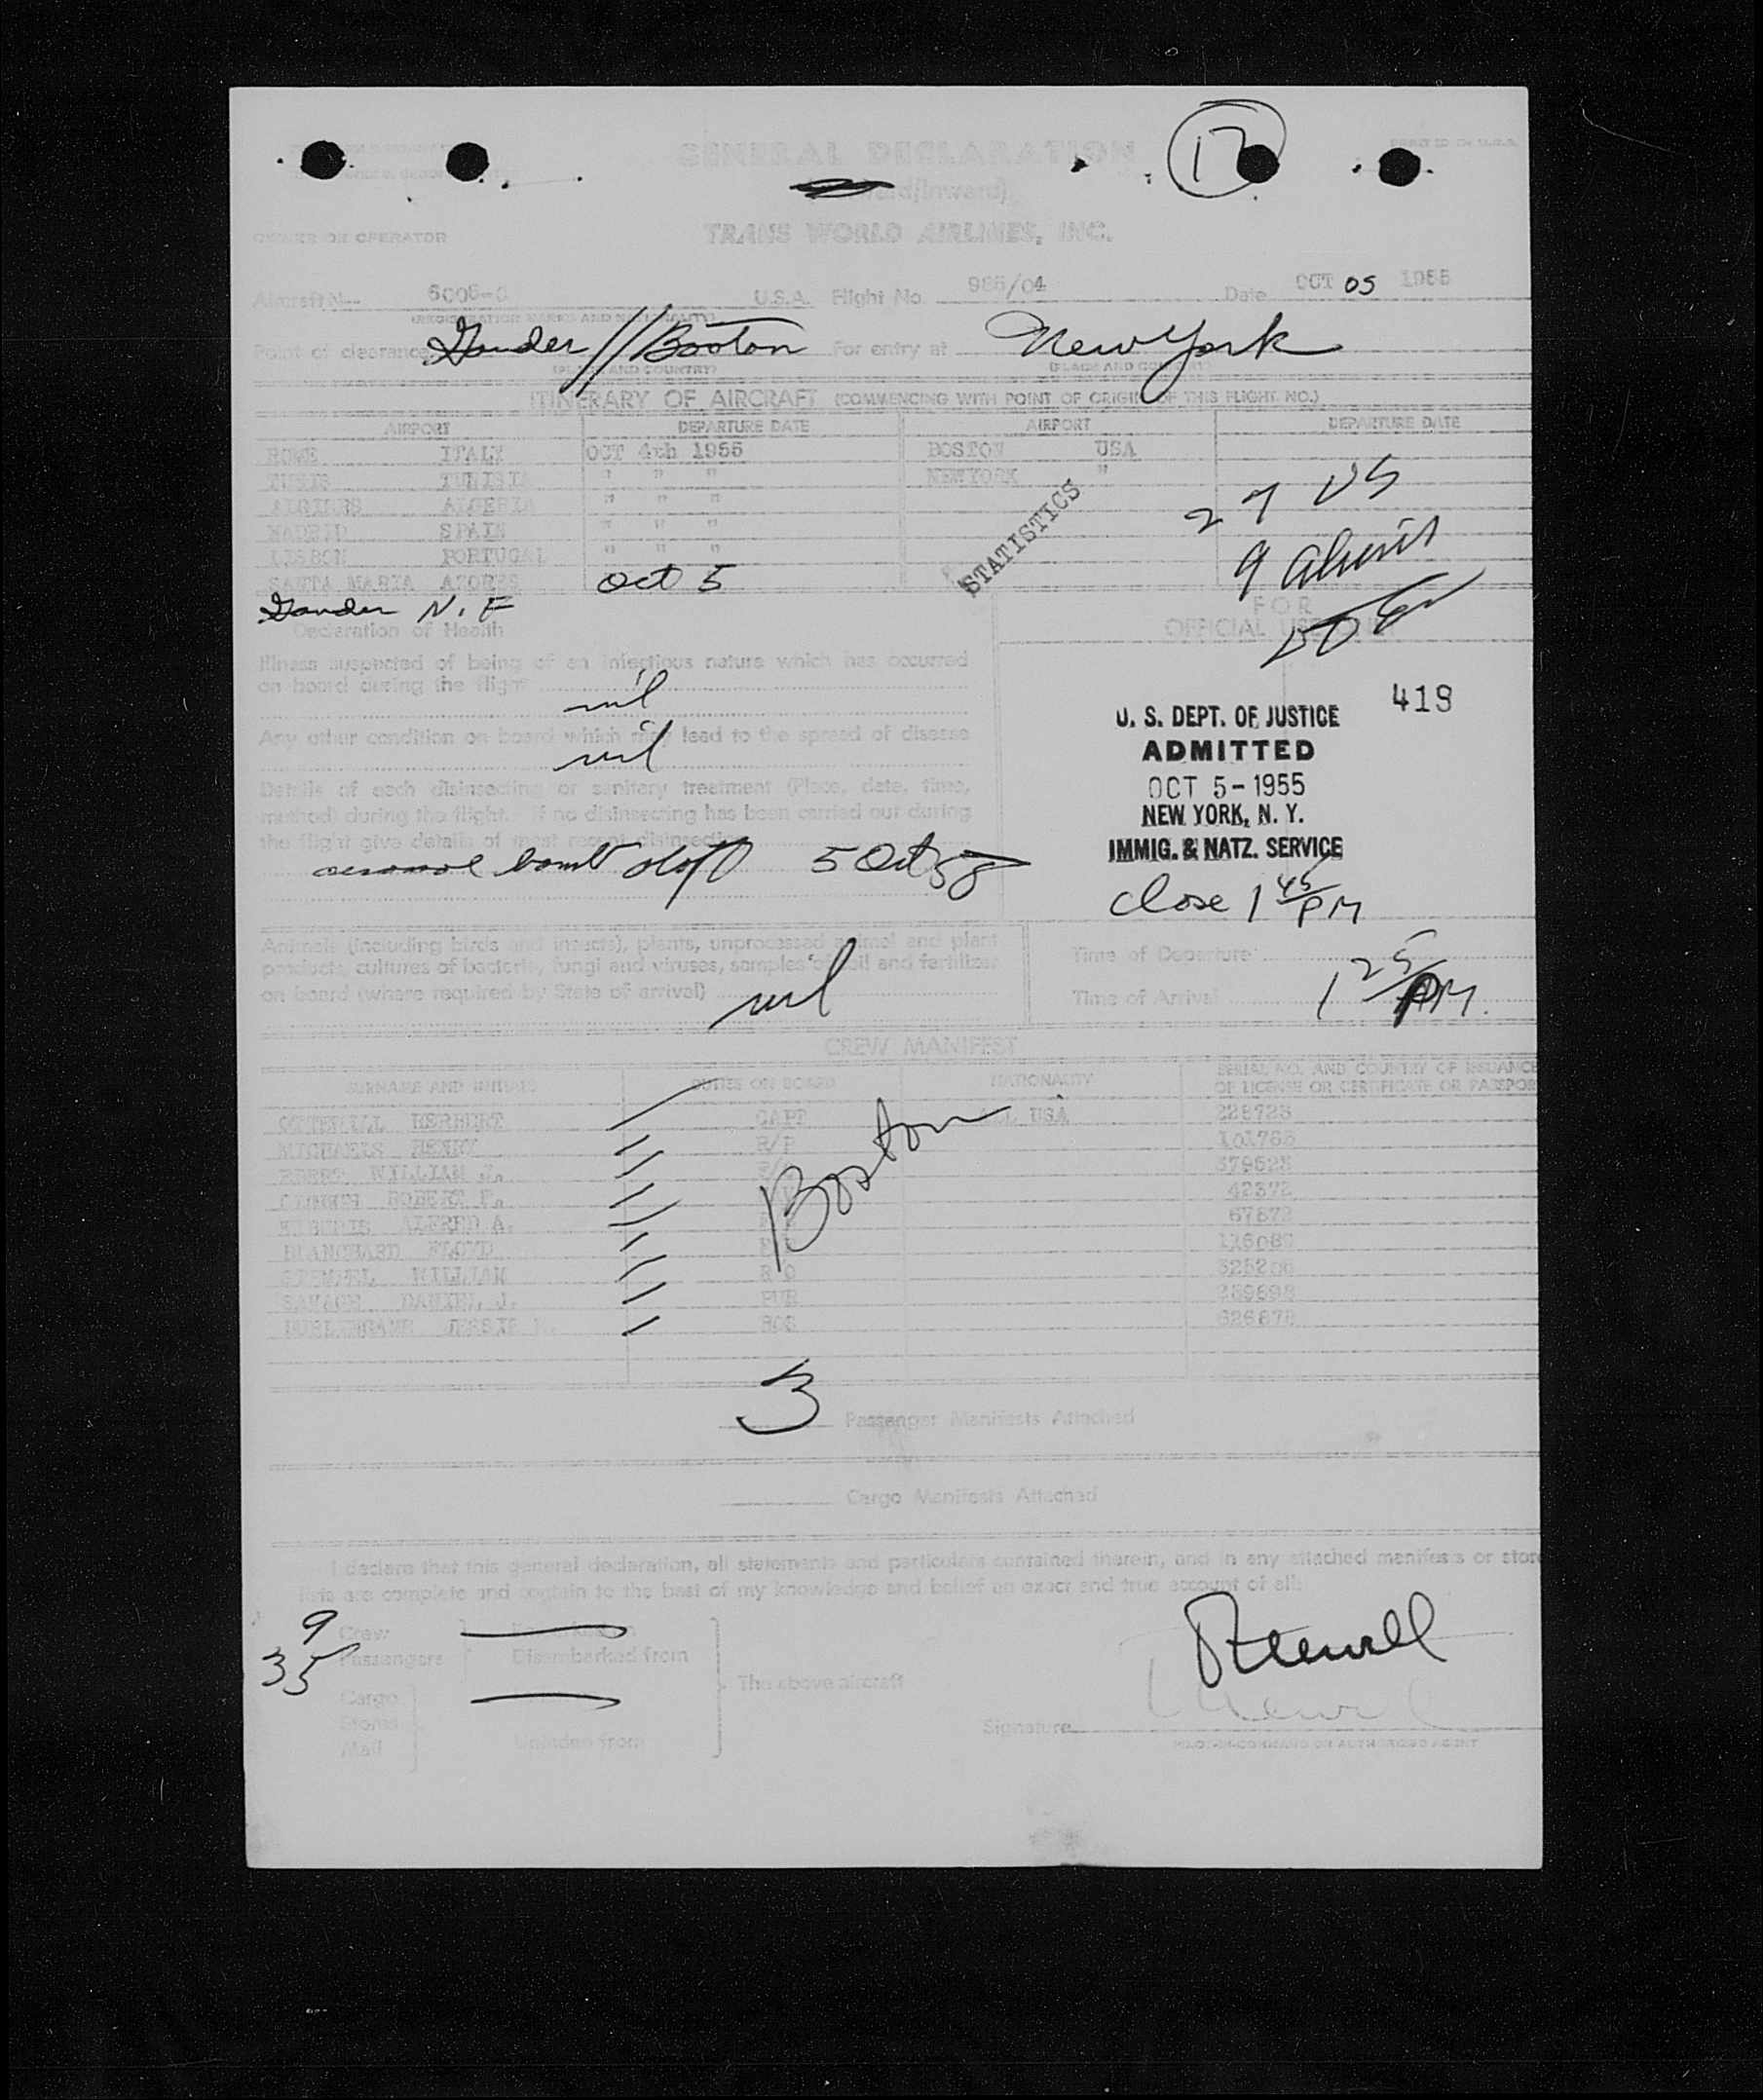 17
GENERAL DECLARATION
(Inward)
PRINTED IN U.S.A.
OWNER OR OPERATOR
TRANS WORLD AIRLINES, INC.
Aircraft No. U.S.A. Flight No. Date OCT 05 1955
(REGISTRATION MARKS AND NATIONALITY)
Point of clearance Gander//Boston For entry at New York
(PLACE AND COUNTRY) (PLACE AND COUNTRY)
ITINERARY OF AIRCRAFT (COMMENCING WITH POINT OF ORIGIN OF THIS FLIGHT NO.)
AIRPORT DEPARTURE DATE AIRPORT DEPARTURE DATE
ROME ITALY OCT 4th 1955 BOSTON USA
TUNIS TUNISIA " " " NEWYORK "
ALGIERS ALGERIA " " "
MADRID SPAIN " " "
LISBON PORTUGAL " " "
SANTA MARIA AZORES Oct 5
Gander N.F
STATISTICS
27 US
9 aliens
FOR
OFFICIAL USE ONLY
Declaration of Health
Illness suspected of being of an infectious nature which has occurred
on board during the flight
nil
Any other condition on board which may lead to the spread of disease
nil
Details of each disinsecting or sanitary treatment (Place, date, time,
method) during the flight. If no disinsecting has been carried out during
the flight give details of most recent disinsecting
aerosol bomb 5 Oct
419
U. S. DEPT. OF JUSTICE
ADMITTED
OCT 5-1955
NEW YORK, N. Y.
IMMIG. & NATZ. SERVICE
Close 1 45 PM
Animals (including birds and insects), plants, unprocessed animal and plant
products, cultures of bacteria, fungi and viruses, samples of soil and fertilizer
on board (where required by State of arrival) nil
Time of Departure
Time of Arrival 1 25 PM.
CREW MANIFEST
SURNAME AND INITIALS DUTIES ON BOARD NATIONALITY SERIAL NO. AND COUNTRY OF ISSUANCE
OF LICENSE OR CERTIFICATE OR PASSPOR
HERBERT CAPT USA
MICHAELS HENRY
WILLIAM J.
ROBERT F.
ALFRED A.
BLANCHARD FLOYD
WILLIAM R/O
SAVAGE DANIEL J. PUR
HOS
Boston
3 Passenger Manifests Attached
Cargo Manifests Attached
I declare that this general declaration, all statements and particulars contained therein, and in any attached manifests or store
lists are complete and contain to the best of my knowledge and belief an exact and true account of all:
9 Crew
35 Passengers Disembarked from
The above aircraft
Cargo
Stores
Mail Unladen from
Signature
PILOT-IN-COMMAND OR AUTHORIZED AGENT